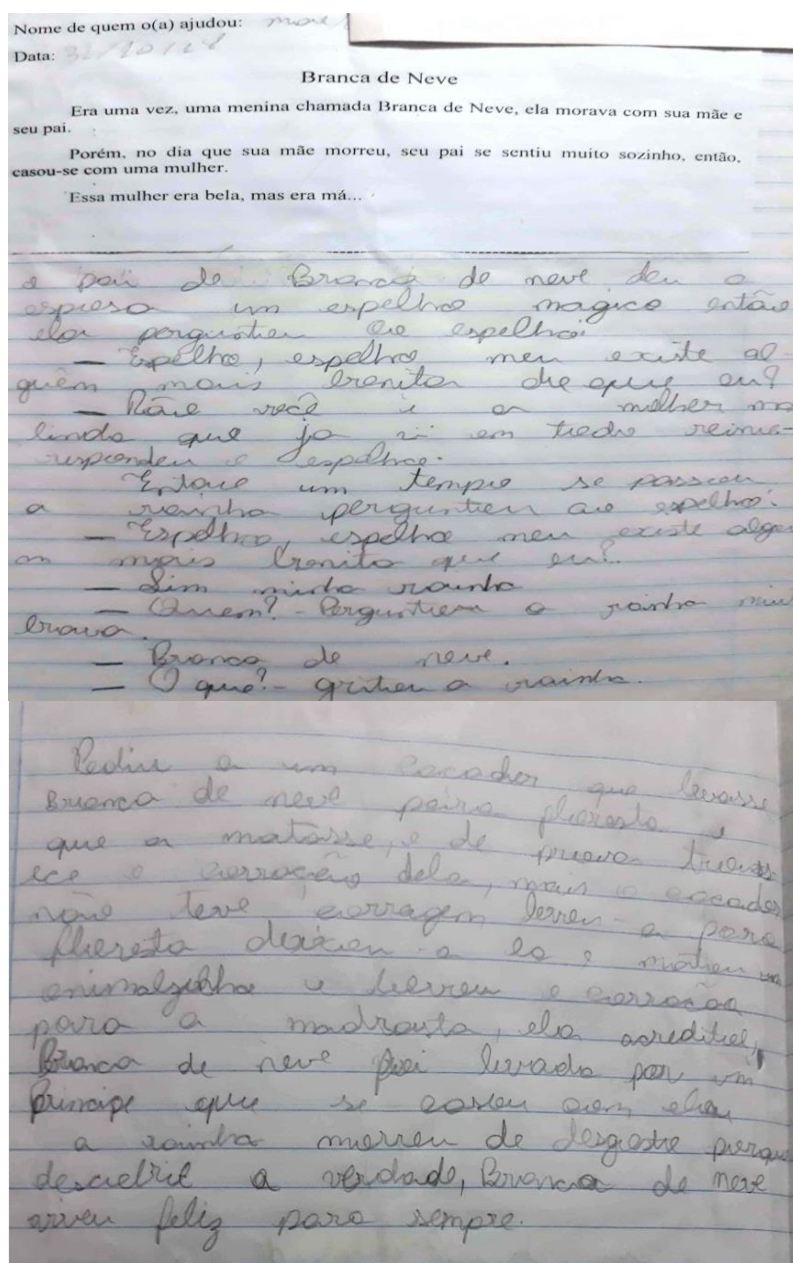 Nome de quem o(a) ajudou:
Data:
Branca de Neve
Era uma vez, uma menina chamada Branca de Neve, ela morava com sua mãe e
seu pai.
Porém, no dia que sua mãe morreu, seu pai se sentiu muito sozinho, então,
casou-se com uma mulher.
Essa mulher era bela, mas era má...
o pai de Branca de neve deu a
espiosa um espelho magico então
ela perguntou ao espelho:
— Espelho, espelho meu existe al-
guém mais bonita do que eu?
— Não você é a mulher ma
linda que ja vi em todo reino-
respondeu o espelho.
Entao um tempo se passou
a rainha perguntou ao espelho:
— Espelho, espelho meu existe algue
m mais bonita que eu?
— Sim minha rainha
— Quem? - Perguntou a rainha mui
brava.
— Branca de neve.
— O que? - gritou a rainha.
Pediu a um cacador que levasse
Branca de neve para floresta e
que a matasse, e de prova troux
ece o corração dela, mais o cacador
não teve corragem levou-a para
floresta deixou-a la e matou um
animalzinho e levou o corração
para a madrasta, ela acreditol,
Branca de neve foi levada por um
Principe que se casou com elea
a rainha morreu de desgosto porque
descobril a verdade, Branca de neve
viveu feliz para sempre.